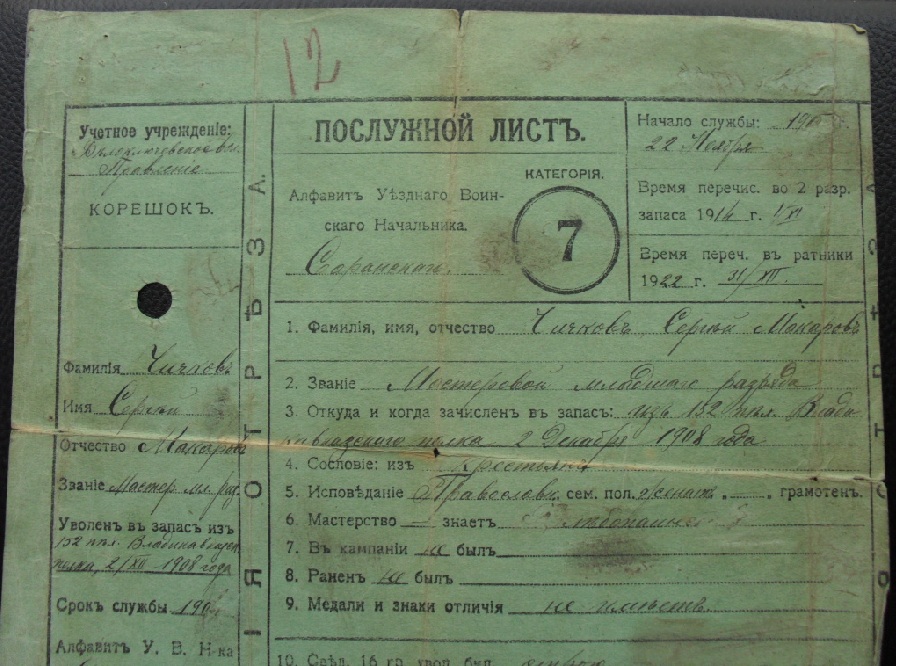 12
Учетное учрежденіе:
Правленіе
КОРЕШОКЪ.
Фамилія Чичковъ
Имя Сергѣй
Отчество Макаровъ
Званіе Мастер мл. раз
Уволенъ въ запасъ изъ
152 пѣх. Владикавказск
полка, 2/XII 1908 года
Срокъ службы 190
Алфавитъ У. В. Н-ка
ЛІЯ ОТРѢЗА.
ПОСЛУЖНОЙ ЛИСТЪ.
Алфавитъ Уѣзднаго Воин-
скаго Начальника.
Саранскаго.
КАТЕГОРІЯ.
7
Начало службы: 190 г.
22 Ноября
Время перечис. во 2 разр.
запаса 1916 г.
Время переч. въ ратники
1922 г. 31/XII.
1. Фамилія, имя, отчество Чичковъ Сергѣй Макаровъ
2. Званіе Мастеровой младшаго разряда
3. Откуда и когда зачисленъ въ запасъ: изъ 152 пѣх. Влади
кавказскаго полка 2 Декабря 1908 года
4. Сословіе: изъ крестьянъ
5. Исповѣданіе Православн. сем. пол. женатъ, грамотенъ.
6. Мастерство знаетъ
7. Въ кампаніи не былъ
8. Раненъ не былъ
9. Медали и знаки отличія не имѣетъ.
10.
ОТРѢЗА